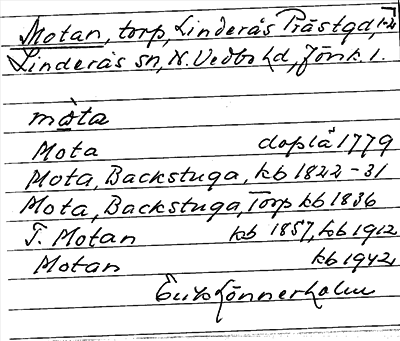 Motan, torp, Linderås Prästgd, 1-2
Linderås sn, N. Vedbo hd, Jönk. l.
måta
Mota doplä 1779
Mota, Backstuga, kb 1822-31
Mota, Backstuga, Torp kb 1836
T. Motan kb 1857, kb 1912
Motan kb 1942,
Erik Lönnerholm